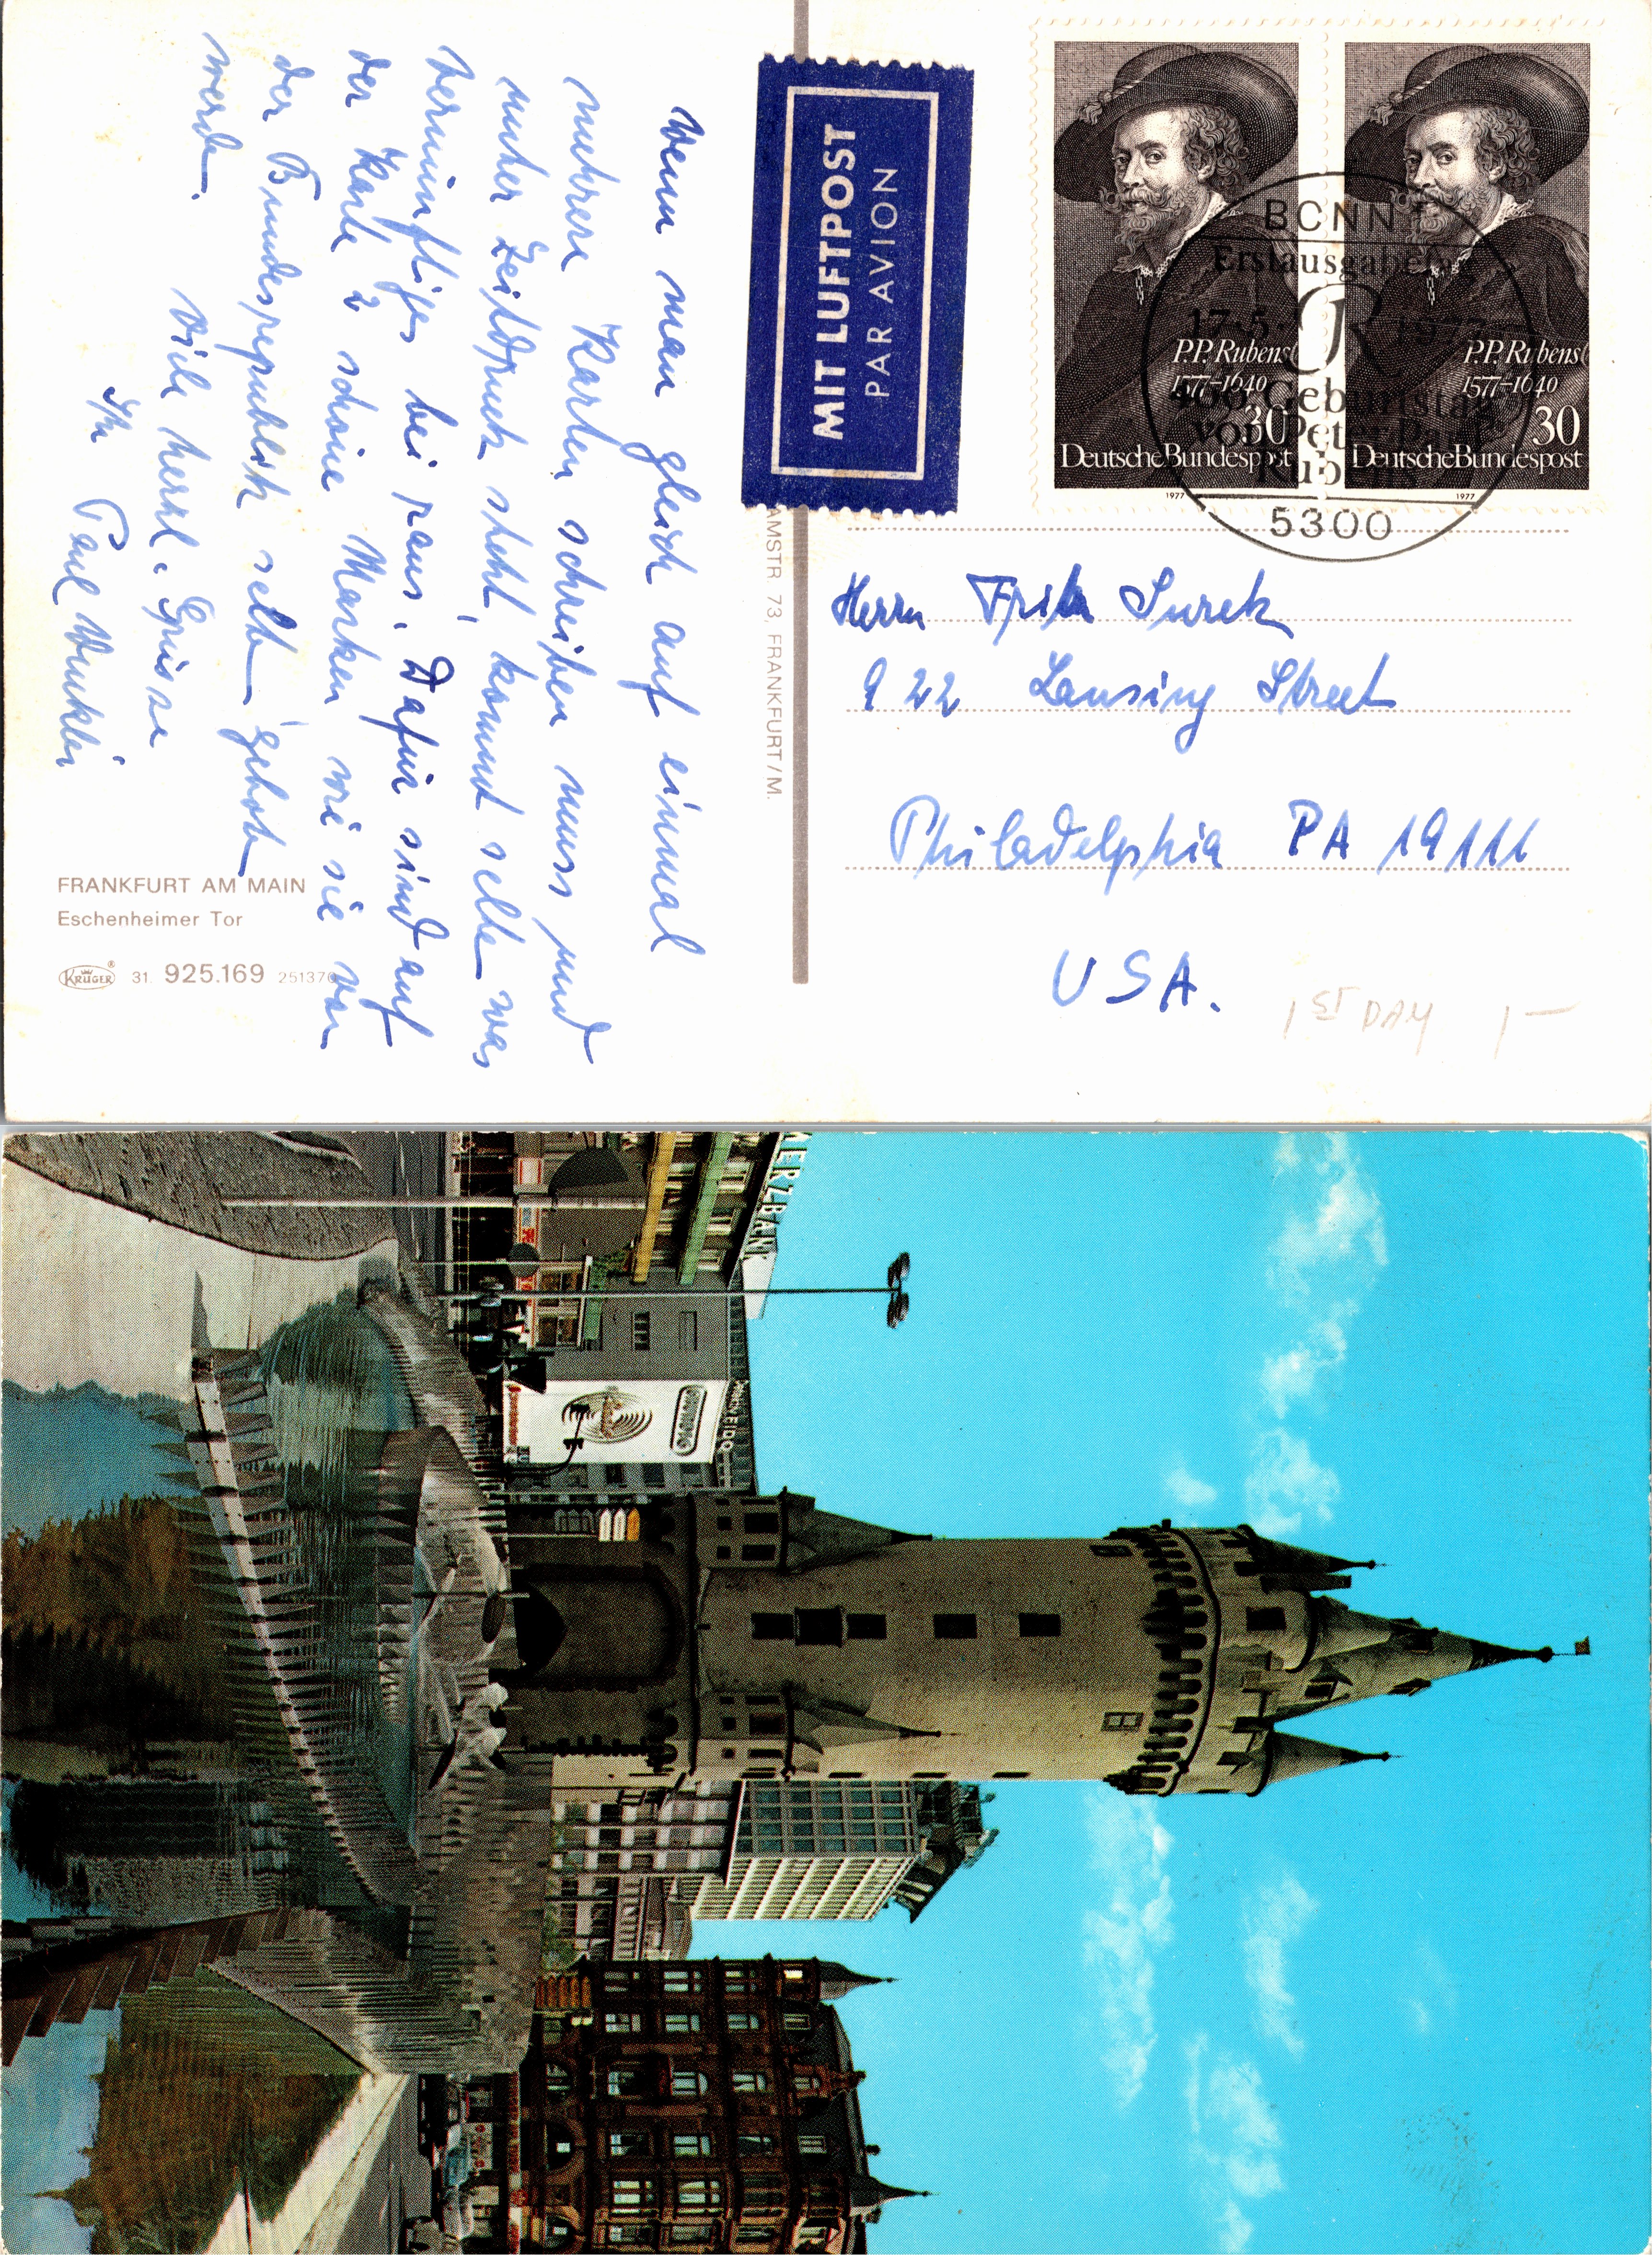 Wenn man gleich auf einmal
mehrere Karten schreiben muss und
unter Zeitdruck steht, kommt selten was
vernünftiges bei raus. Dafür sind auf
der Karte 2 schöne Marken wie sie von
der Bundesrepublik selten gehabt
werden.
Viele herzl. Grüsse
Ihr Paul Winkler
FRANKFURT AM MAIN
Eschenheimer Tor
KRÜGER® 31. 925.169 251376
AMSTR. 73, FRANKFURT/M.
MIT LUFTPOST
PAR AVION
P.P. Rubens
1577-1640
30
Deutsche Bundespost
1977
P.P. Rubens
1577-1640
30
Deutsche Bundespost
1977
BONN
Erstausgabetag
17.-5. R 1977
400. Geburtstag
von Peter Paul
Rubens
5300
Herrn Fritz Surek
922 Lansing Street
Philadelphia PA 19111
USA.
1ST DAY 1-
MERZBANK